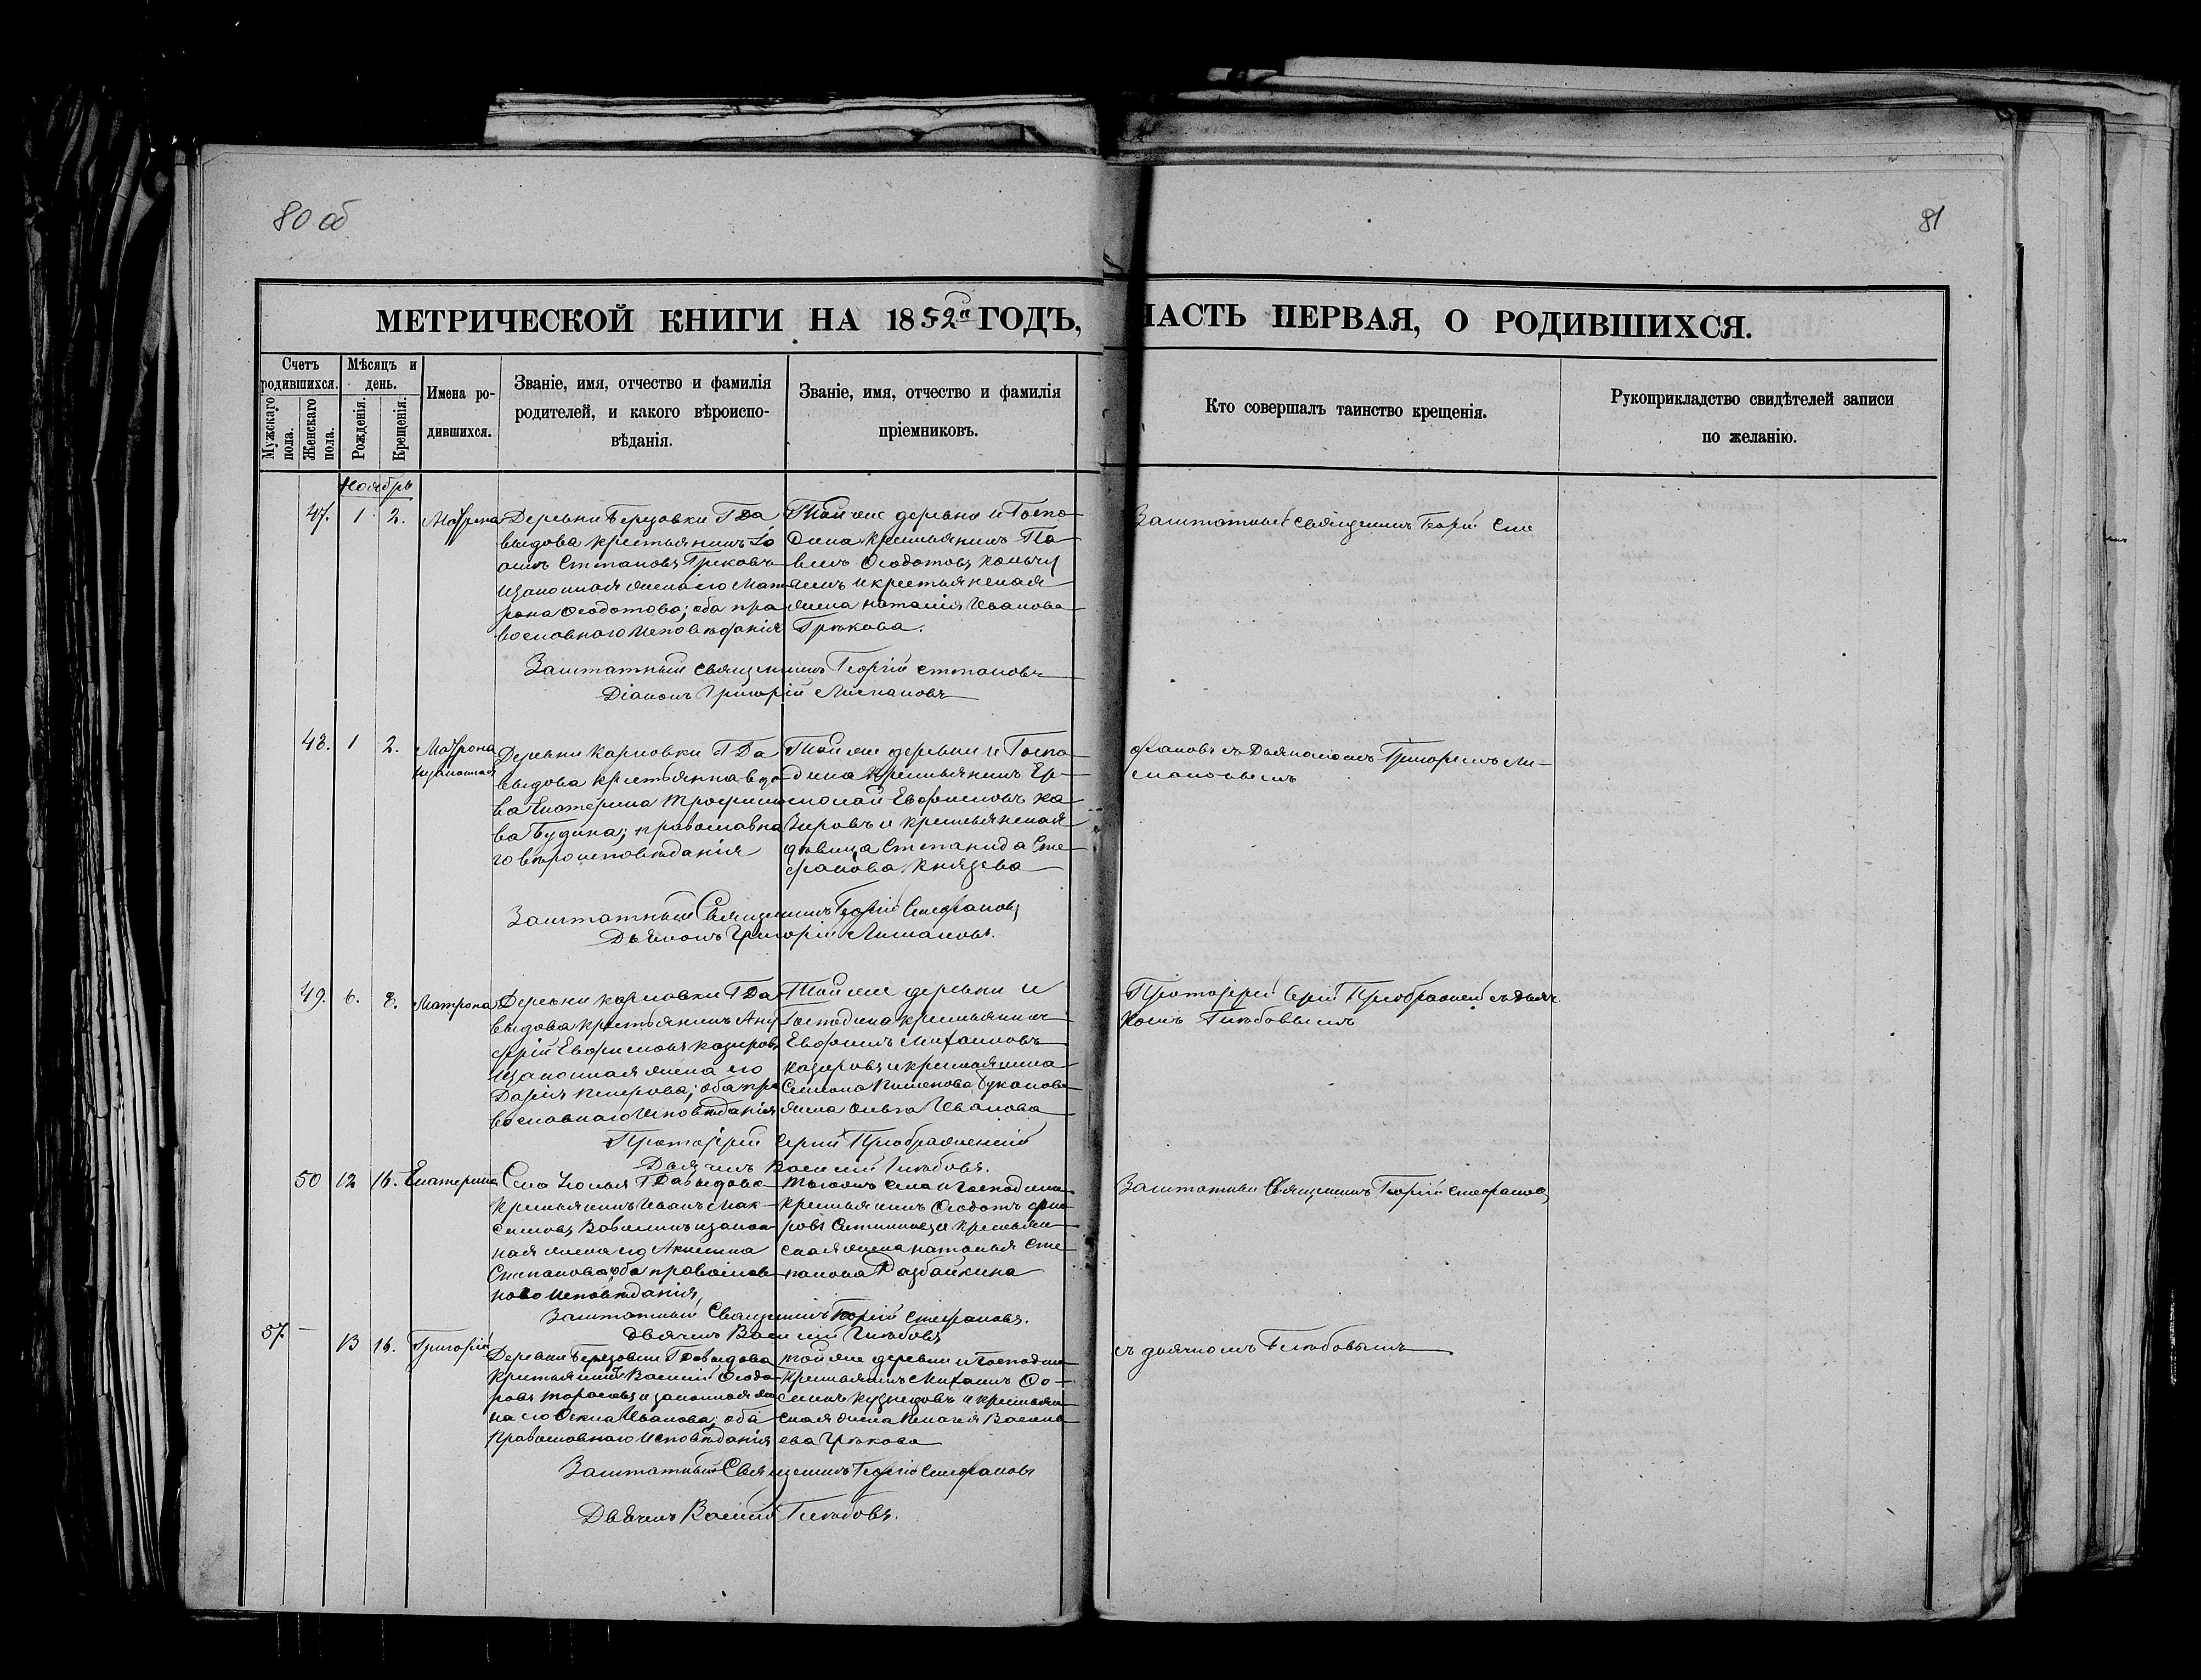 80 об
81
МЕТРИЧЕСКОЙ КНИГИ НА 1852й ГОДЪ, ЧАСТЬ ПЕРВАЯ, О РОДИВШИХСЯ.
Счетъ родившихся.
Мужскаго пола.
Женскаго пола.
Мѣсяцъ и день.
Рожденія.
Крещенія.
Имена ро-
дившихся.
Званіе, имя, отчество и фамилія
родителей, и какого вѣроиспо-
вѣданія.
Званіе, имя, отчество и фамилія
пріемниковъ.
Кто совершалъ таинство крещенія.
Рукоприкладство свидѣтелей записи
по желанію.
Ноябрь
47. 1 2. Матрона
Деревни Березовки Г Да
выдова крестьянинъ
Степановъ Грековъ
и законная жена его Мат
рона Ѳеодотова; оба пра
вославнаго исповѣданія
Той же деревни и Госпо
дина крестьянинъ Па
велъ Ѳеодотовъ
и крестьянская
жена Наталія Иванова
Грѣкова.
Заштатный священникъ Георгій Сте
Заштатный священникъ Георгій Степановъ
Діаконъ Григорій
48. 1 2. Матрона
незаконная
Деревни Карповки Г Да
выдова крестьянка вдо
ва Екатерина Трофимо
ва Будина; православна
го вѣроисповѣданія
Той же деревни и Госпо
дина крестьянинъ Ер
молай Евфимовъ Ка
зировъ и крестьянская
дѣвица Степанида Сте
фанова Князева
фановъ съ Дьякономъ Григоріемъ Ли-
Заштатный Священникъ Георгій Стефановъ
Дьяконъ Григорій
49. 6. 8. Матрона
Деревни Карповки Г Да
выдова крестьянинъ Анд
рей Евфимовъ Казировъ
и законная жена его
Дарія Петрова; оба пра
вославнаго исповѣданія
Той же деревни и
Господина крестьянинъ
Евфимъ Михайловъ
Казировъ и крестьянина
Семена Буканова
жена Ольга Иванова
Протоіерей Сергій Преображенскій съ дьяч
комъ Глѣбовымъ
Протоіерей Сергій Преображенскій
Дьячекъ Василій Глѣбовъ.
50 12 16. Екатерина
Села Г Давыдова
крестьянинъ Иванъ Мак
симовъ и закон
ная жена его Акилина
Степанова оба православ
наго исповѣданія,
тогожъ села и Господина
крестьянинъ Ѳеодотъ
и крестьян
ская жена Наталья Сте
панова Разбайкина
Заштатный Священникъ Георгій Стефановъ
Заштатный Священникъ Георгій Стефановъ.
Дьячекъ Василій Глѣбовъ
57. – 13 16. Григорій
Деревни Березовки Г Давыдова
крестьянинъ Василій Ѳеодо
ровъ Тарасовъ и законная же
на его Иванова, оба
Православнаго исповѣданія
той же деревни и Господина
крестьянинъ Михаилъ
Кузнецовъ и крестьян
ская жена Пелагея Василь
ева Грѣкова
съ дьячкомъ Глѣбовымъ
Заштатный Священникъ Георгій Стефановъ
Дьячекъ Василій Глѣбовъ.